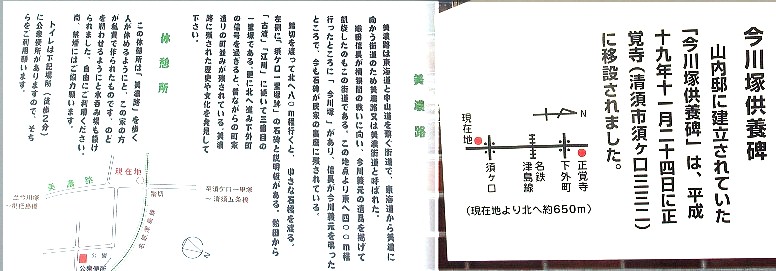 今川塚供養碑
山内邸に建立されていた
「今川塚供養碑」は、平成
十九年十一月二十四日に正
覚寺（清須市須ヶ口二三二）
に移設されました。
N
現在地
須ヶ口
名鉄
津島線
下外町
正覚寺
（現在地より北へ約650m）
美濃路
美濃路は東海道と中山道を繋ぐ街道で、東海道から美濃に
向かう街道のため美濃路又は美濃街道と呼ばれた。
織田信長が桶狭間の戦いに向い、今川義元の首品を掲げて
凱旋したのもこの街道である。この地点より東へ四〇〇m程
行ったところに「今川塚」があり、信長が今川義元を弔った
ところで、今も石碑が民家の裏庭に残されている。
踏切を渡って北へ八〇m程行くと、小さな石橋を渡る。
左側に、須ケ口一里塚跡の石碑と説明板がある。熱田から
「古渡」「江川」に続いて三番目の
一里塚である。更に北へ進み下外町
の信号を過ぎると、昔ながらの町家
造りの町並みが残されている。美濃
路に残された歴史や文化を発見して
下さい。
休憩所
この休憩所は「美濃路」を歩く
人が休めるようにと、この家の方
が私費で作られたものです。のど
を潤わせるようにと水呑み場も設け
られました。自由にご利用ください。
尚、禁煙にはご協力願います。
トイレは下記場所（徒歩2分）
に公衆便所がありますので、そち
らをご利用願います。
美濃路
現在地
踏切
至須ケ口一里塚
〜清須五条橋
至今川塚
名鉄津島線
N
公園
公衆便所